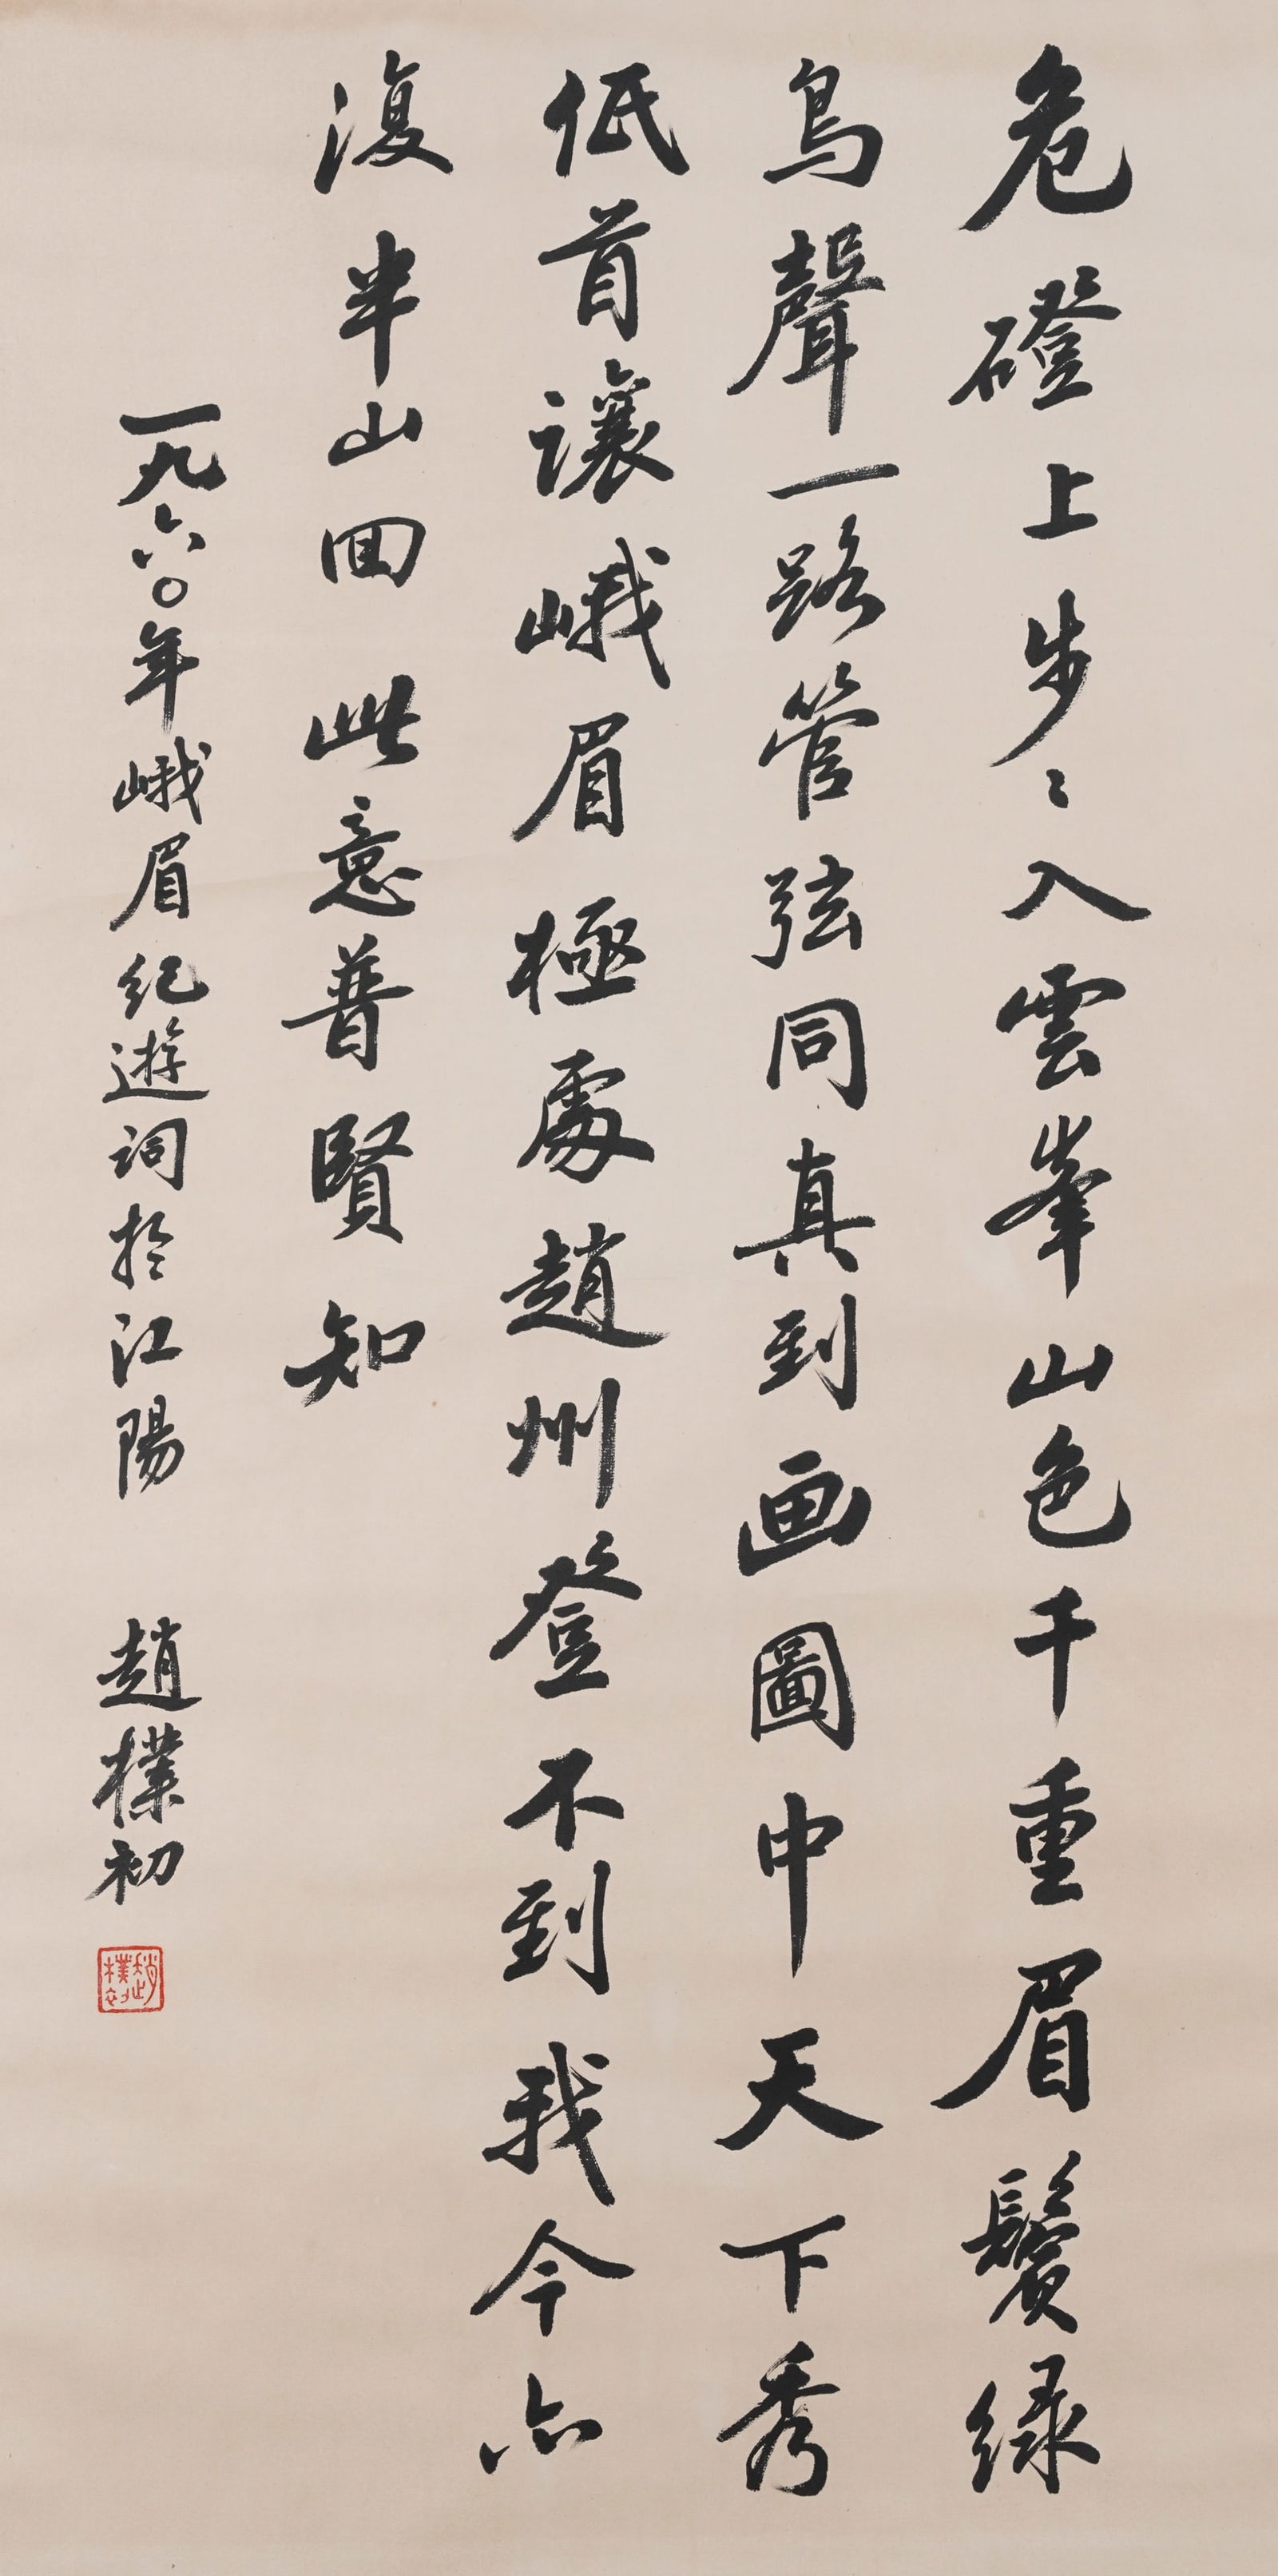 危磴上步〻入雲峯山色千重眉鬢绿
鳥聲一路管弦同真到画圖中天下秀
低首讓峨眉極處趙州登不到我今亦
復半山回此意普賢知
一九六〇年峨眉紀遊詞於江陽
趙樸初
趙樸初